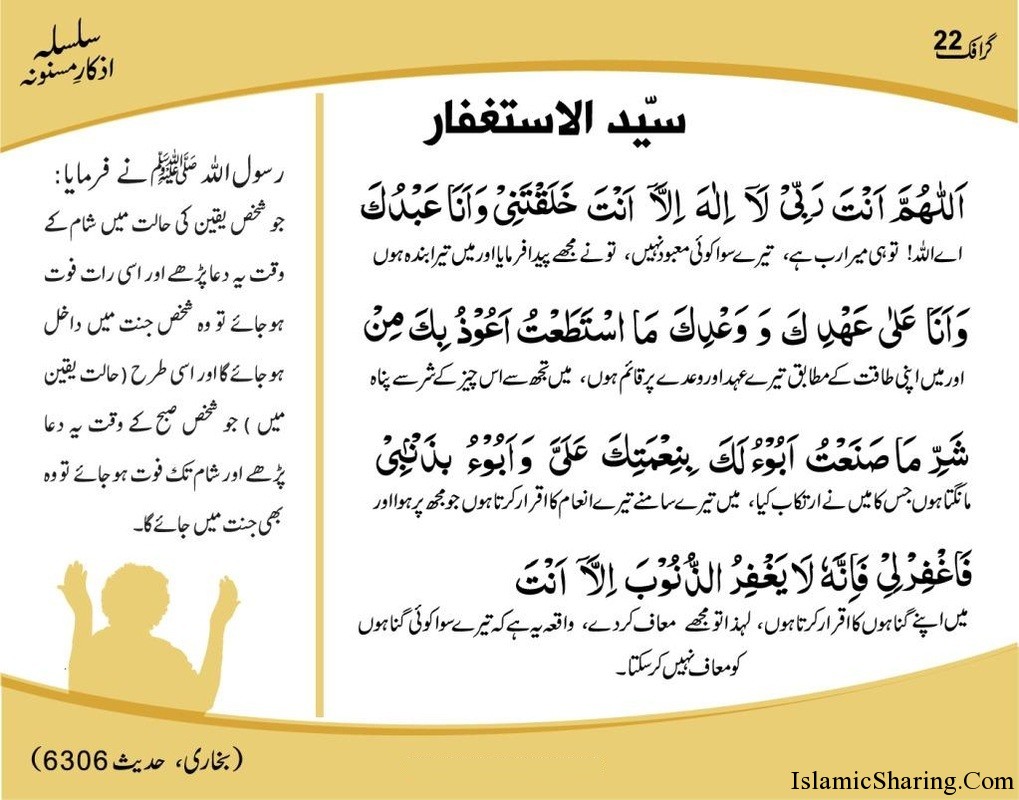 گرافک 22
سلسلہ
اذکارِ مسنونہ
سیّد الاستغفار
اَللّٰهُمَّ اَنْتَ رَبِّیْ لَآ اِلٰهَ اِلَّآ اَنْتَ خَلَقْتَنِیْ وَاَنَا عَبْدُكَ
اے اللہ! تو ہی میرا رب ہے، تیرے سوا کوئی معبود نہیں، تو نے مجھے پیدا فرمایا اور میں تیرا بندہ ہوں
وَاَنَا عَلٰی عَهْدِ كَ وَ وَعْدِكَ مَا اسْتَطَعْتُ اَعُوْذُ بِكَ مِنْ
اور میں اپنی طاقت کے مطابق تیرے عہد اور وعدے پر قائم ہوں، میں تجھ سے اس چیز کے شر سے پناہ
شَرِّ مَا صَنَعْتُ اَبُوْءُ لَكَ بِنِعْمَتِكَ عَلَیَّ وَاَبُوْءُ بِذَنْۢبِیْ
مانگتا ہوں جس کا میں نے ارتکاب کیا، میں تیرے سامنے تیرے انعام کا اقرار کرتا ہوں جو مجھ پر ہوا اور
فَاغْفِرْلِیْ فَاِنَّهٗ لَا يَغْفِرُ الذُّنُوْبَ اِلَّآ اَنْتَ
میں اپنے گناہوں کا اقرار کرتا ہوں، لہذا تو مجھے معاف کر دے، واقعہ یہ ہے کہ تیرے سوا کوئی گناہوں
کو معاف نہیں کر سکتا۔
رسول اللہ ﷺ نے فرمایا:
جو شخص یقین کی حالت میں شام کے
وقت یہ دعا پڑھے اور اسی رات فوت
ہو جائے تو وہ شخص جنت میں داخل
ہو جائے گا اور اسی طرح (حالت یقین
میں) جو شخص صبح کے وقت یہ دعا
پڑھے اور شام تک فوت ہو جائے تو وہ
بھی جنت میں جائے گا۔
(بخاری، حدیث 6306)
IslamicSharing.Com